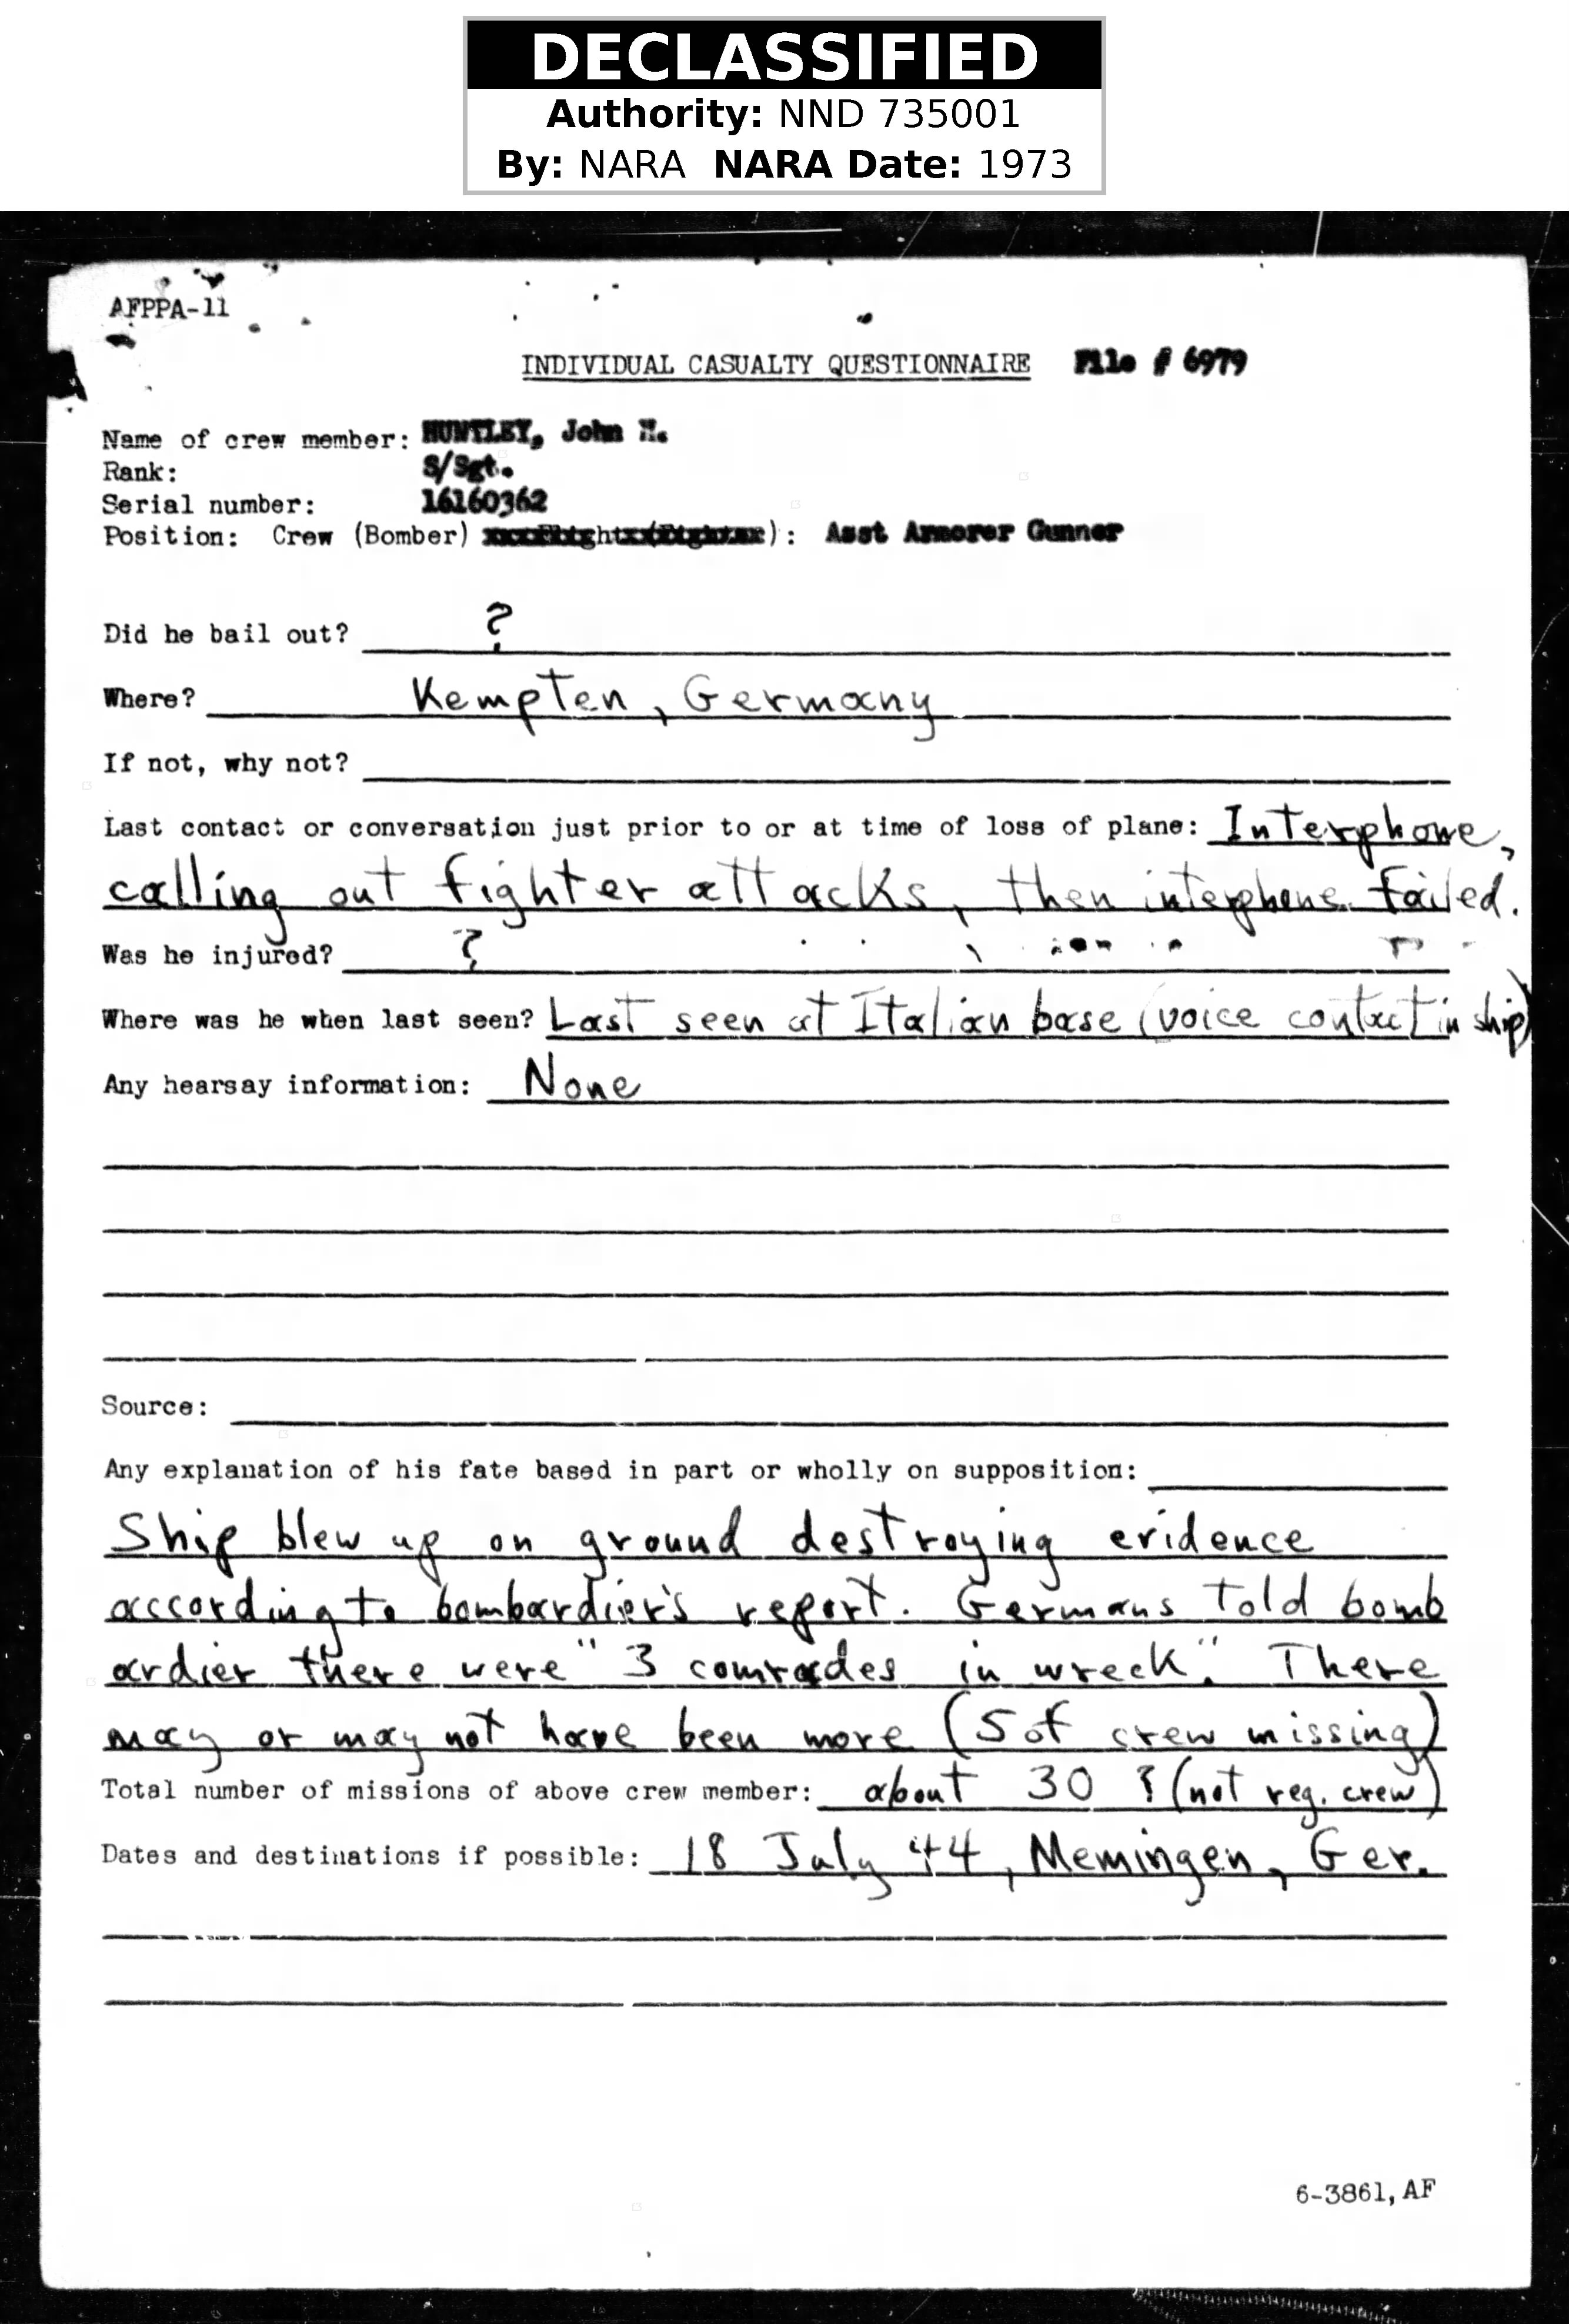 DECLASSIFIED
Authority: NND 735001
By: NARA NARA Date: 1973
AFPPA-11
INDIVIDUAL CASUALTY QUESTIONNAIRE File # 6979
Name of crew member: HUNTLEY, John H.
Rank: S/Sgt.
Serial number: 16160362
Position: Crew (Bomber) ): Asst Armorer Gunner
Did he bail out? ?
Where? Kempten, Germany
If not, why not?
Last contact or conversation just prior to or at time of loss of plane: Interphone,
calling out fighter attacks, then interphone failed.
Was he injured? ?
Where was he when last seen? Last seen at Italian base (voice contact in ship)
Any hearsay information: None
Source:
Any explanation of his fate based in part or wholly on supposition:
Ship blew up on ground destroying evidence
according to bombardier's report. Germans told bomb
ardier there were "3 comrades in wreck". There
may or may not have been more (5 of crew missing)
Total number of missions of above crew member: about 30 ? (not reg. crew)
Dates and destinations if possible: 18 July 44, Memingen, Ger.
6-3861, AF